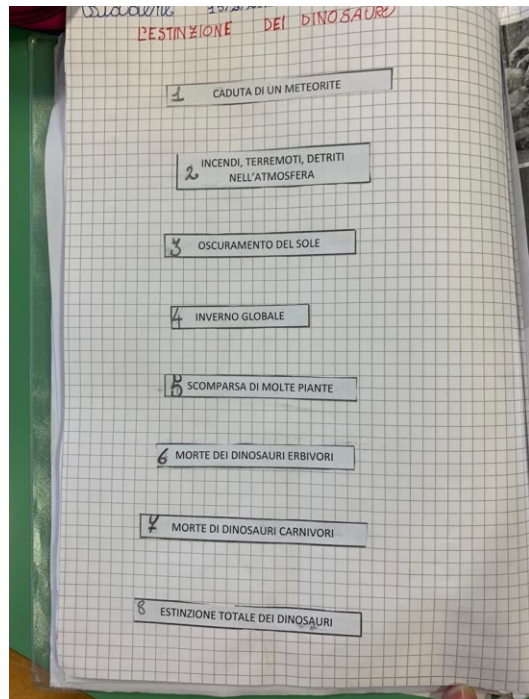 L'ESTINZIONE DEI DINOSAURI
1 CADUTA DI UN METEORITE
2 INCENDI, TERREMOTI, DETRITI
NELL'ATMOSFERA
3 OSCURAMENTO DEL SOLE
4 INVERNO GLOBALE
5 SCOMPARSA DI MOLTE PIANTE
6 MORTE DEI DINOSAURI ERBIVORI
7 MORTE DI DINOSAURI CARNIVORI
8 ESTINZIONE TOTALE DEI DINOSAURI